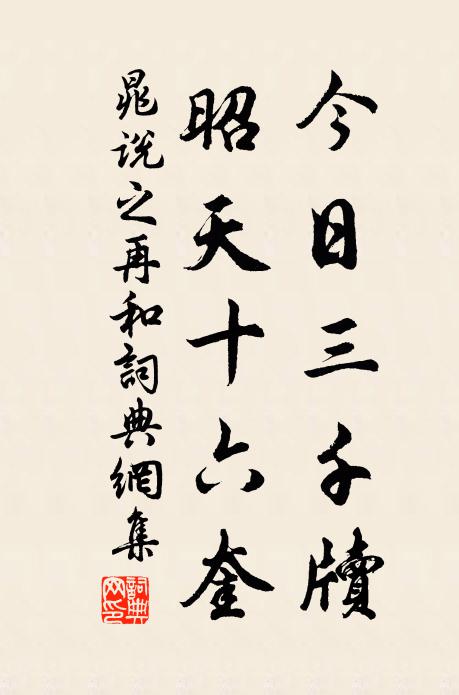 今日三千牘
昭天十六奎
晁說之再和詞典網集
詞典网印